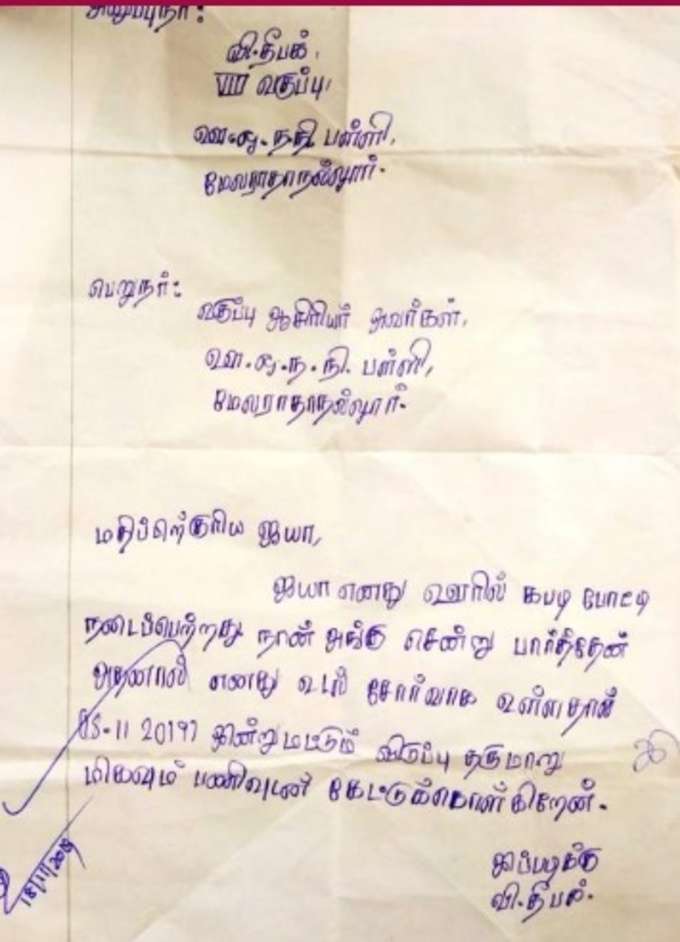 அனுப்புநர்:
வி.தீபக்,
VIII வகுப்பு,
ஊ.ஒ.ந.நி பள்ளி,
மேலராதாநல்லூர்.
பெறுநர்:
வகுப்பு ஆசிரியர் அவர்கள்,
ஊ.ஒ.ந.நி. பள்ளி,
மேலராதாநல்லூர்.
மதிப்பிற்குரிய ஐயா,
ஐயா எனது ஊரில் கபடி போட்டி
நடைப்பெற்றது நான் அங்கு சென்று பார்த்தேன்
அதனால் எனது உடல் சோர்வாக உள்ளதால்
இன்று மட்டும் விடுப்பு தருமாறு
மிகவும் பணிவுடன் கேட்டுக்கொள்கிறேன்.
இப்படிக்கு
வி.தீபக்.